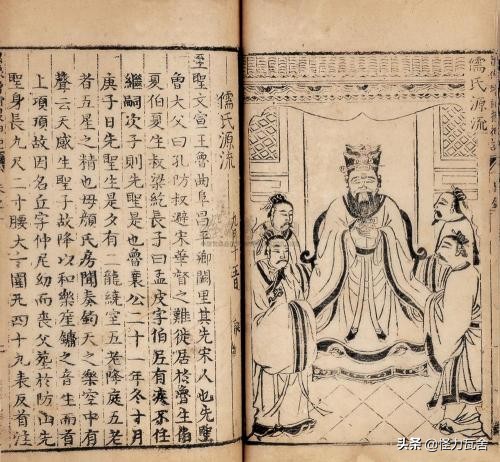 儒氏源流
儒氏源流
至聖文宣王魯曲阜昌平鄉闕里其先宋人也先聖
魯大父曰孔防叔避宋華督之難徙居於魯生伯
夏伯夏生叔梁紇長子曰孟皮字伯尼有疾不任
繼嗣次子則先聖是也魯襄公二十一年冬十月
庚子日先聖生是夕有二龍繞室五老降庭五老
者五星之精也母顏氏房聞奏鈞天之樂空中有
聲云天感生聖子故降以和樂笙鏞之音生而首
上頂項故因名丘字仲尼幼而喪父葬於防山先
聖身長九尺二寸腰大十圍凡四十九表反首注
头条 @怪力瓦舍